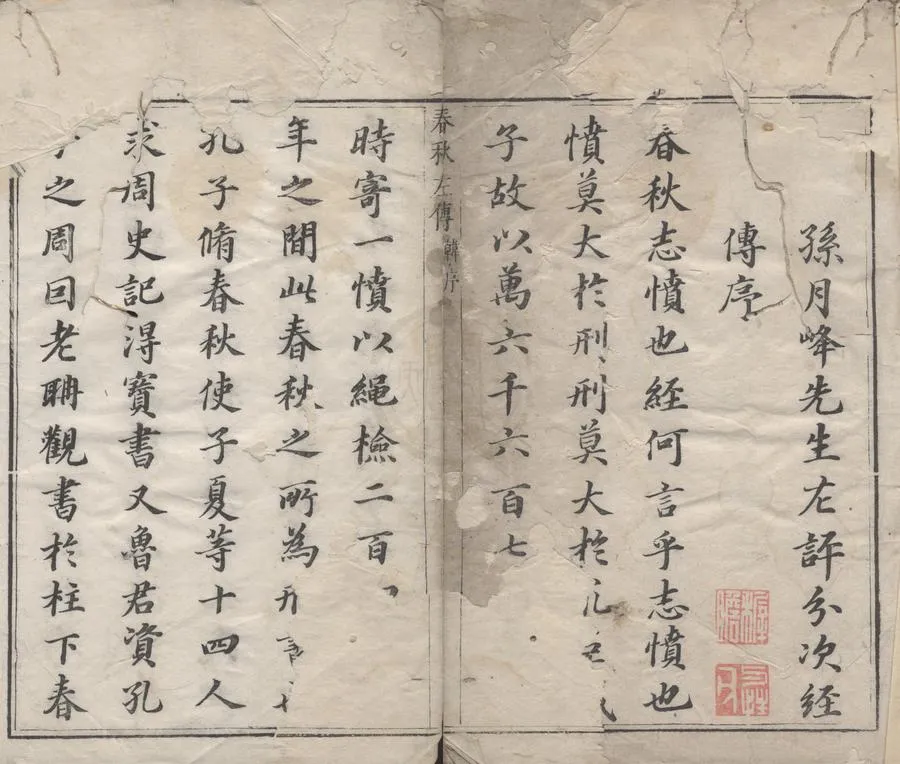 孫月峰先生左評分次經
傳序
春秋志憤也經何言乎志憤也
憤莫大於刑刑莫大於
子故以萬六千六百七
春秋左傳韓序
時寄一憤以繩檢二百
年之間此春秋之所為
孔子脩春秋使子夏等十四人
求周史記得寶書又魯君資孔
子之周回老聃觀書於柱下春